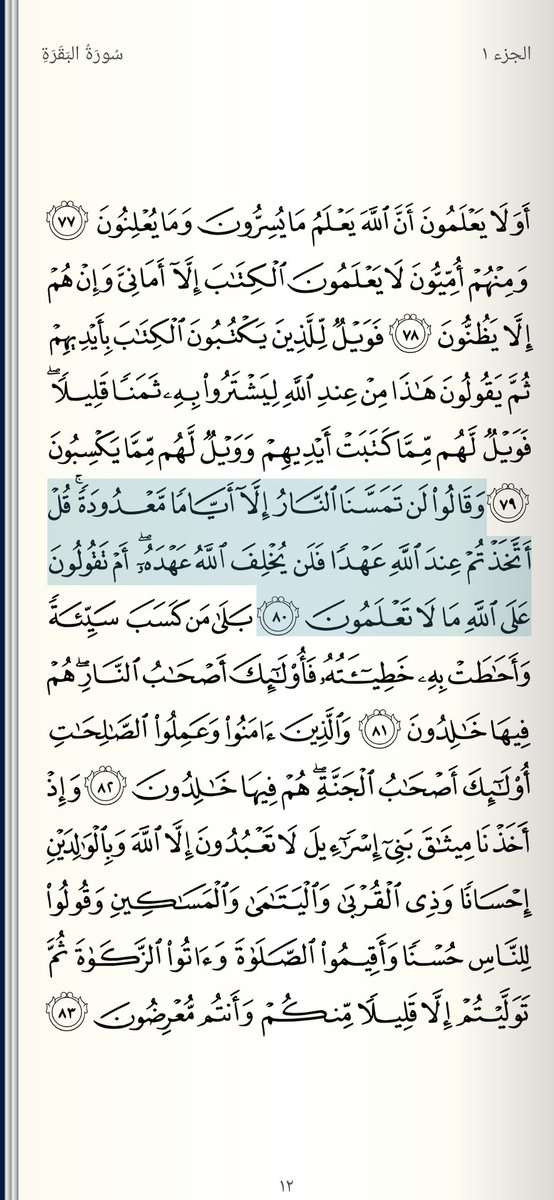 الجزء ١
سُورَةُ البَقَرَةِ
أَوَلَا يَعۡلَمُونَ أَنَّ ٱللَّهَ يَعۡلَمُ مَا يُسِرُّونَ وَمَا يُعۡلِنُونَ ٧٧
وَمِنۡهُمۡ أُمِّيُّونَ لَا يَعۡلَمُونَ ٱلۡكِتَٰبَ إِلَّآ أَمَانِيَّ وَإِنۡ هُمۡ
إِلَّا يَظُنُّونَ ٧٨ فَوَيۡلٞ لِّلَّذِينَ يَكۡتُبُونَ ٱلۡكِتَٰبَ بِأَيۡدِيهِمۡ
ثُمَّ يَقُولُونَ هَٰذَا مِنۡ عِندِ ٱللَّهِ لِيَشۡتَرُواْ بِهِۦ ثَمَنٗا قَلِيلٗاۖ
فَوَيۡلٞ لَّهُم مِّمَّا كَتَبَتۡ أَيۡدِيهِمۡ وَوَيۡلٞ لَّهُم مِّمَّا يَكۡسِبُونَ
٧٩ وَقَالُواْ لَن تَمَسَّنَا ٱلنَّارُ إِلَّآ أَيَّامٗا مَّعۡدُودَةٗۚ قُلۡ
أَتَّخَذۡتُمۡ عِندَ ٱللَّهِ عَهۡدٗا فَلَن يُخۡلِفَ ٱللَّهُ عَهۡدَهُۥٓۖ أَمۡ تَقُولُونَ
عَلَى ٱللَّهِ مَا لَا تَعۡلَمُونَ ٨٠ بَلَىٰ مَن كَسَبَ سَيِّئَةٗ
وَأَحَٰطَتۡ بِهِۦ خَطِيٓـَٔتُهُۥ فَأُوْلَٰٓئِكَ أَصۡحَٰبُ ٱلنَّارِۖ هُمۡ
فِيهَا خَٰلِدُونَ ٨١ وَٱلَّذِينَ ءَامَنُواْ وَعَمِلُواْ ٱلصَّٰلِحَٰتِ
أُوْلَٰٓئِكَ أَصۡحَٰبُ ٱلۡجَنَّةِۖ هُمۡ فِيهَا خَٰلِدُونَ ٨٢ وَإِذۡ
أَخَذۡنَا مِيثَٰقَ بَنِيٓ إِسۡرَٰٓءِيلَ لَا تَعۡبُدُونَ إِلَّا ٱللَّهَ وَبِٱلۡوَٰلِدَيۡنِ
إِحۡسَانٗا وَذِي ٱلۡقُرۡبَىٰ وَٱلۡيَتَٰمَىٰ وَٱلۡمَسَٰكِينِ وَقُولُواْ
لِلنَّاسِ حُسۡنٗا وَأَقِيمُواْ ٱلصَّلَوٰةَ وَءَاتُواْ ٱلزَّكَوٰةَ ثُمَّ
تَوَلَّيۡتُمۡ إِلَّا قَلِيلٗا مِّنكُمۡ وَأَنتُم مُّعۡرِضُونَ ٨٣
١٢